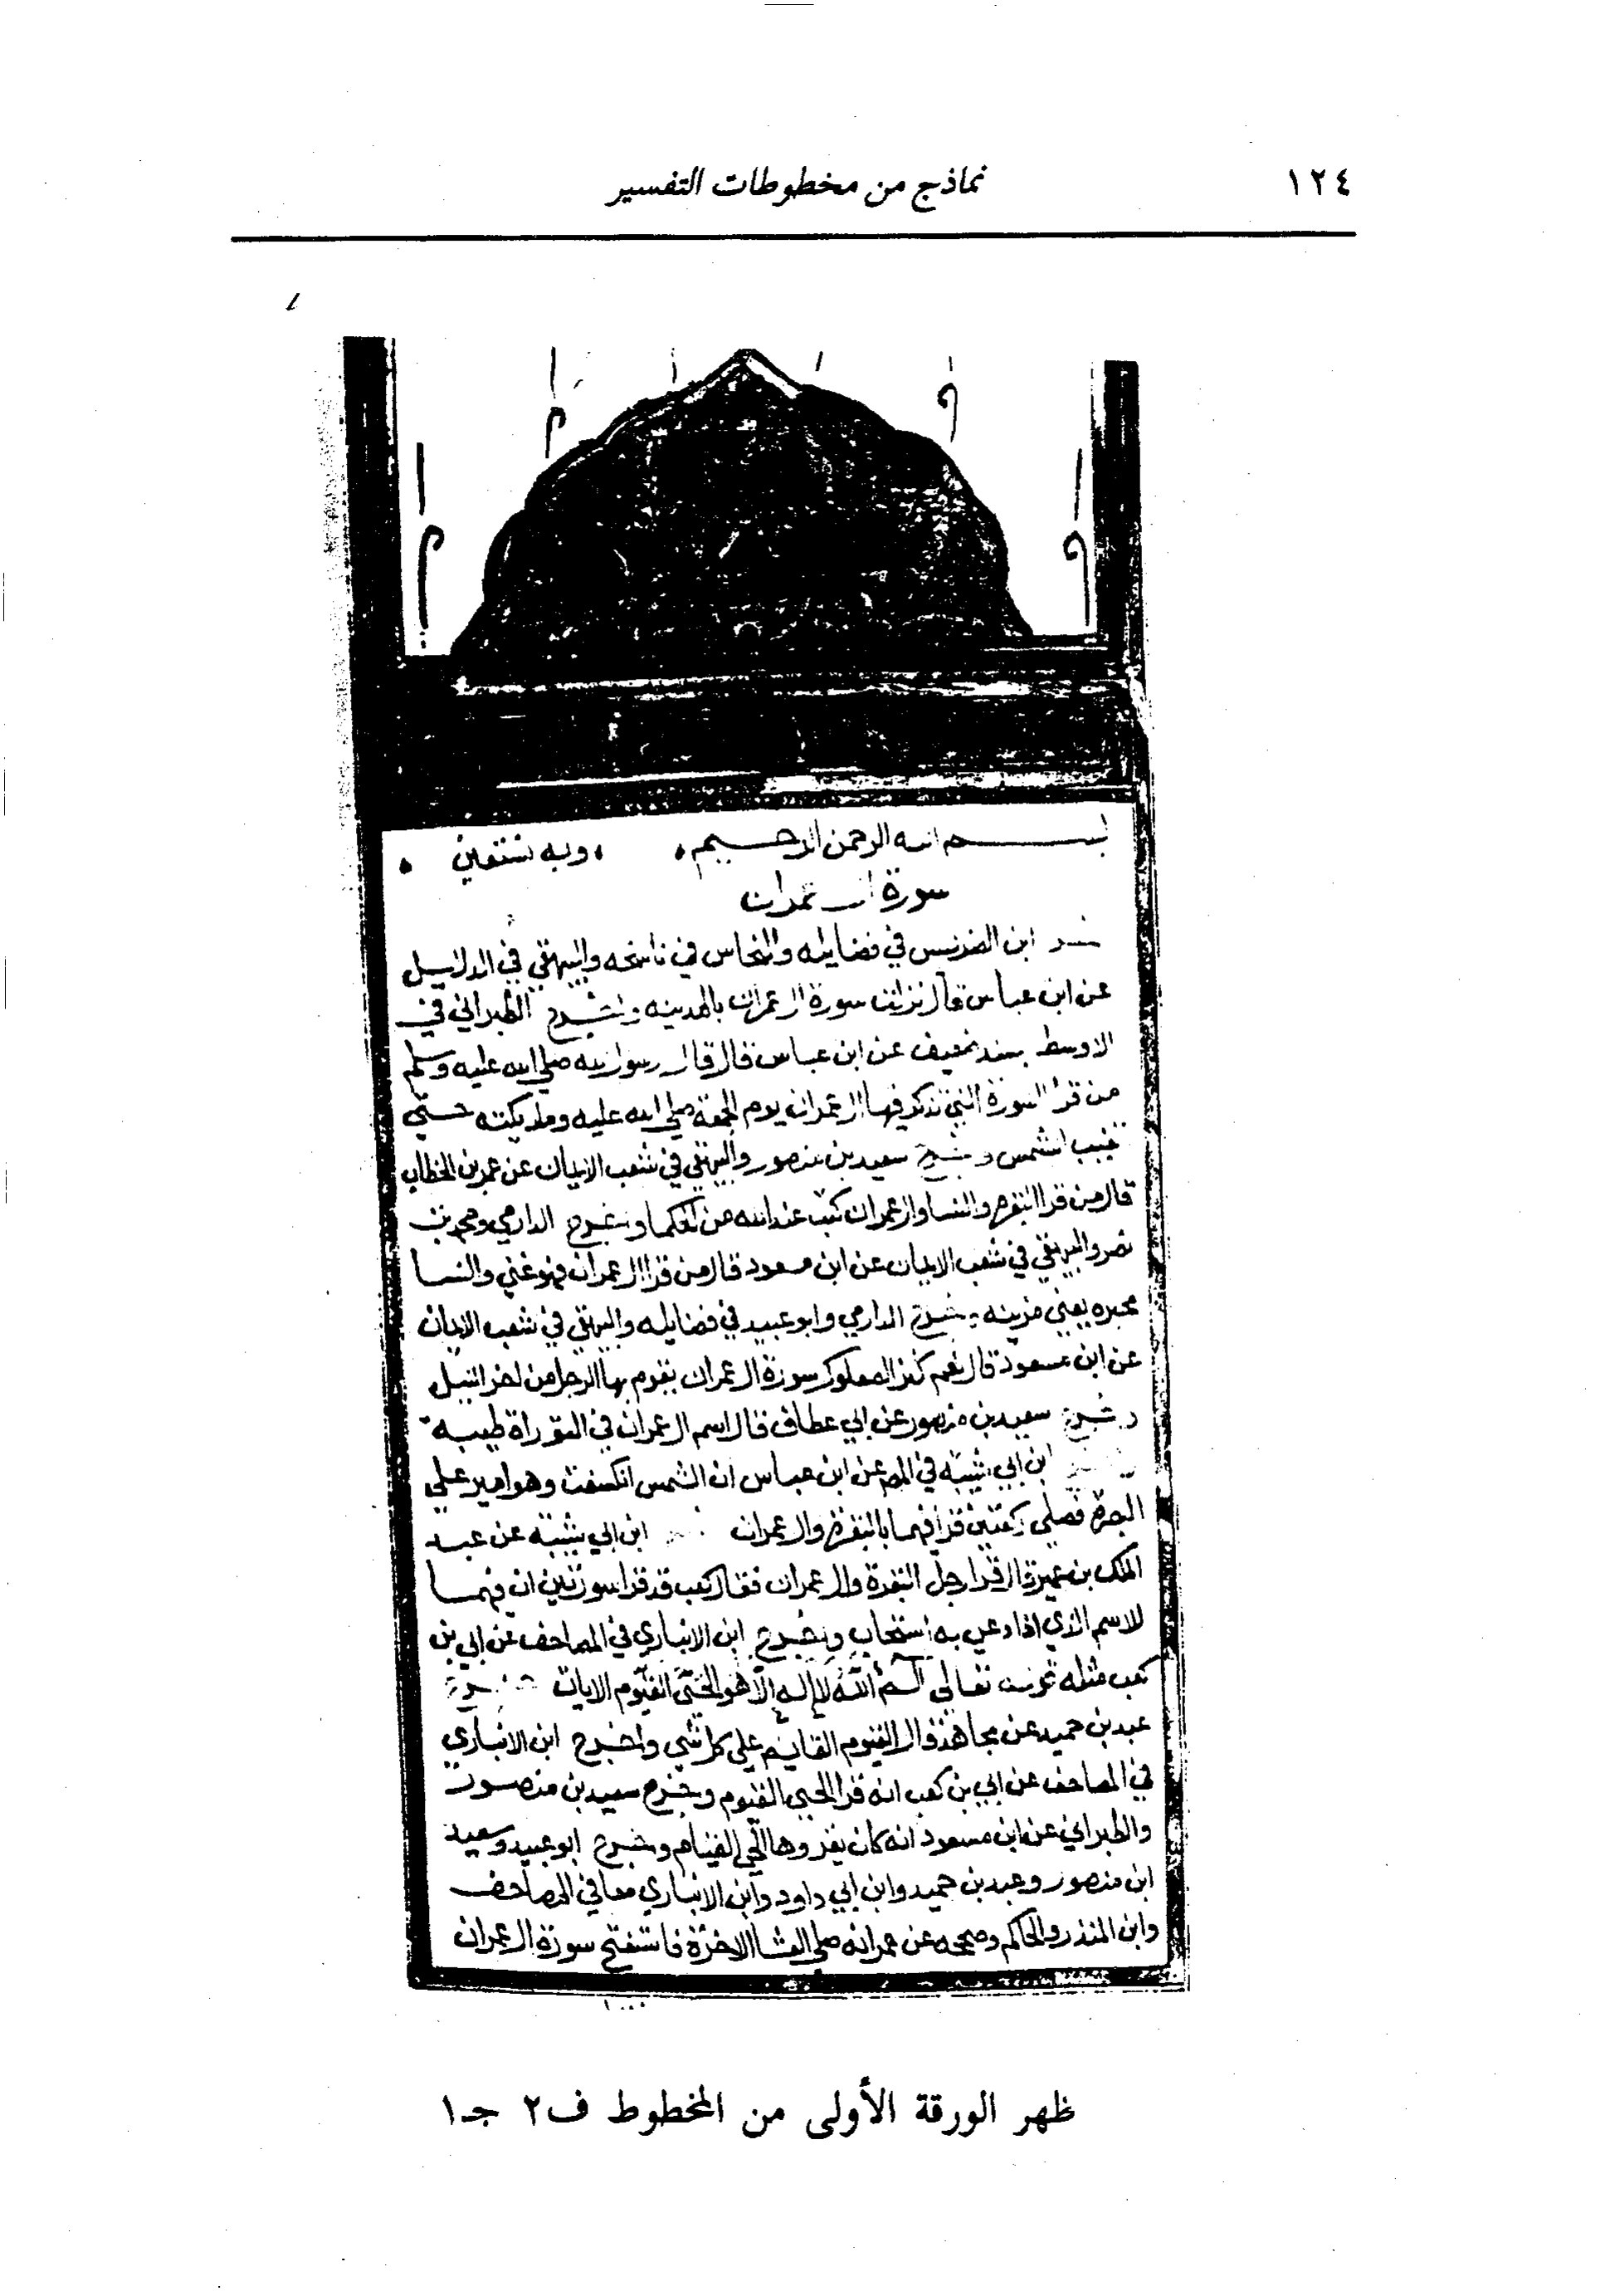 ١٢٤
نماذج من مخطوطات التفسير
بسم الله الرحمن الرحيم وبه نستعين
سورة ال عمران
ابن الضريس في فضايله والنحاس في ناسخه والبيهقي في الدلايل
عن ابن عباس قال نزلت سورة ال عمران بالمدينه واخرج الطبراني في
الاوسط بسند ضعيف عن ابن عباس قال قال رسول الله صلي الله عليه وسلم
من قرا السورة التي تذكر فيها ال عمران يوم الجمعة صلي الله عليه وملايكته حتي
تغيب الشمس واخرج سعيد بن منصور والبيهقي في شعب الايمان عن عمر بن الخطاب
قال من قرا البقرة والنسا وال عمران كتب عند الله من الحكما واخرج الدارمي ومحمد بن
نصر والبيهقي في شعب الايمان عن ابن مسعود قال من قرا ال عمران فهو غني والنسا
محبره يعني مزينه واخرج الدارمي وابو عبيد في فضايله والبيهقي في شعب الايمان
عن ابن مسعود قال نعم كنز الصعلوك سورة ال عمران يقوم بها الرجل من اخر الليل
واخرج سعيد بن منصور عن ابي عطاف قال اسم ال عمران في التوراة طيبه
ابن ابي شيبه في المص عن ابن عباس ان الشمس انكسفت وهو امير علي
البصرة فصلي ركعتين قرا فيهما بالبقرة وال عمران ابن ابي شيبه عن عبد
الملك بن عمير قال قرا رجل البقرة وال عمران فقال كعب قد قرا سورتين ان فيهما
للاسم الذي اذا دعي به استجاب واخرج ابن الانباري في المصاحف عن ابي بن
كعب مثله قوله تعالي الم الله لا إله إلا هو الحي القيوم الايات
عبد بن حميد عن مجاهد قال القيوم القايم علي كل شي واخرج ابن الانباري
في المصاحف عن ابي بن كعب انه قرا الحي القيوم واخرج سعيد بن منصور
والطبراني عن ابن مسعود انه كان يقروها الحي القيام واخرج ابو عبيد وسعيد
ابن منصور وعبد بن حميد وابن ابي داود وابن الانباري معا في المصاحف
وابن المنذر والحاكم وصححه عن عمر انه صلي العشا الاخرة فاستفتح سورة ال عمران
ظهر الورقة الأولى من المخطوط ف٢ جـ١